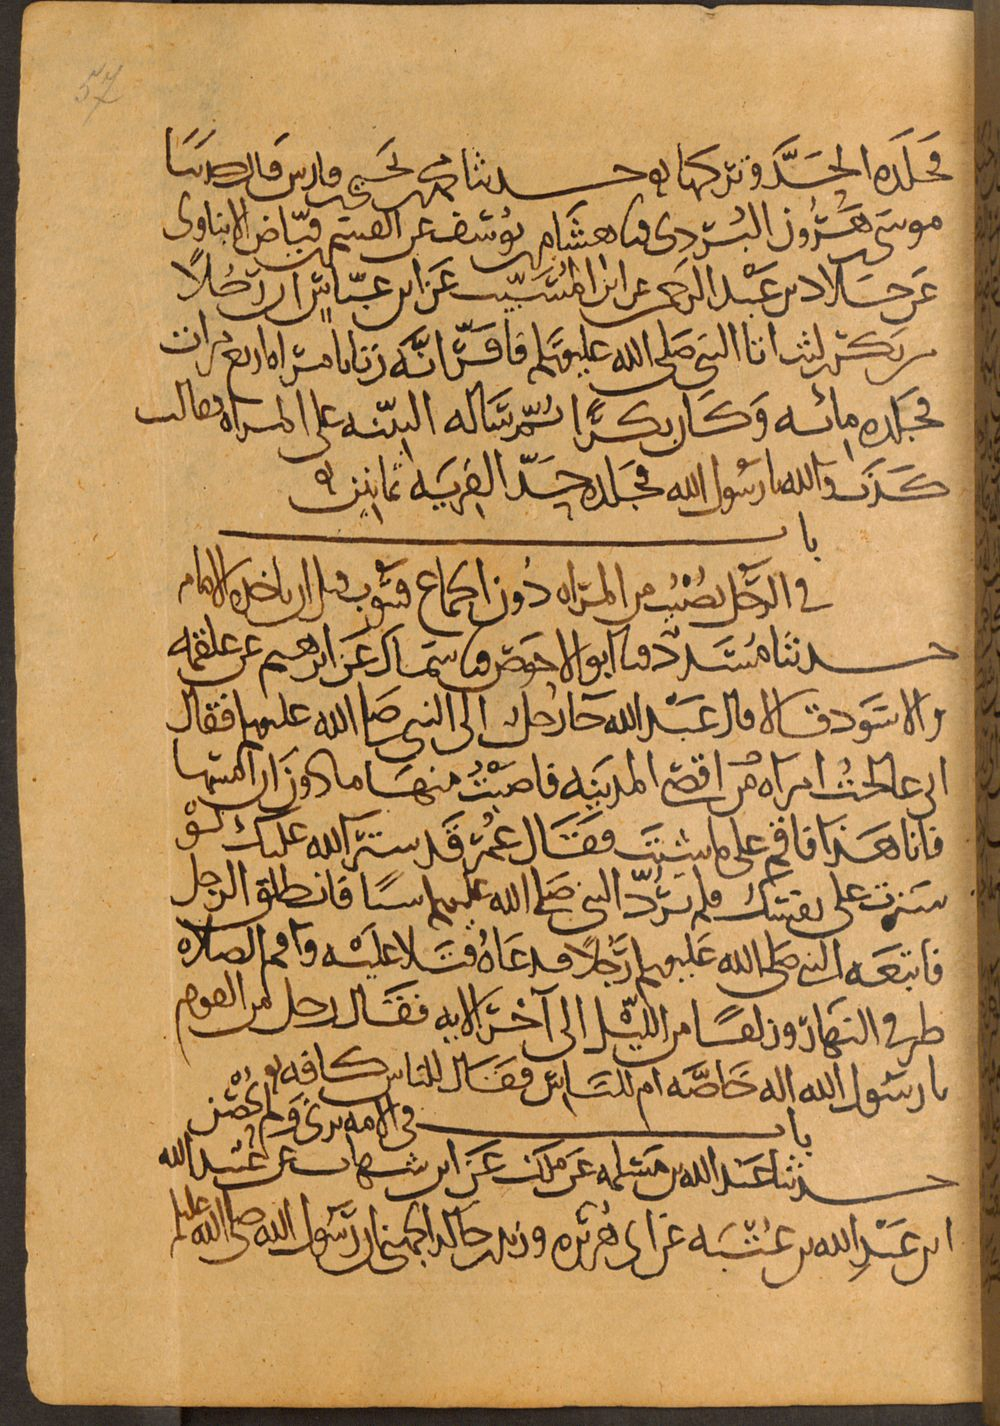 57
فجلده الحد وتركها حدثنا محمد بن يحيى بن فارس قال حدثنا
موسى بن هرون البردي نا هشام بن يوسف عن القسم بن فياض الابناوي
عن خلاد بن عبد الرحمن عن ابن المسيب عن ابن عباس ان رجلا
من بكر بن ليث اتا النبي صلى الله عليه وسلم فاقر انه زنا بامراه اربع مرات
فجلده مائه وكان بكرا ثم ساله البينه على المراه فقالت
كذب والله يا رسول الله فجلده حد الفريه ثمانين
باب
في الرجل يصيب من المراه دون الجماع فيتوب قبل ان ياخذه الامام
حدثنا مسدد نا ابو الاحوص نا سماك عن ابرهيم عن علقمه
والاسود قالا قال عبد الله جا رجل الى النبي صلى الله عليه وسلم فقال
اني عالجت امراه من اقصى المدينه فاصبت منها ما دون ان امسها
فانا هذا فاقم علي ما شئت فقال عمر قد ستر الله عليك لو
سترت على نفسك فلم يرد النبي صلى الله عليه وسلم شيئا فانطلق الرجل
فاتبعه النبي صلى الله عليه وسلم رجلا فدعاه فتلا عليه واقم الصلاه
طرفي النهار وزلفا من الليل الى آخر الايه فقال رجل من القوم
يا رسول الله اله خاصه ام للناس فقال للناس كافه
باب في الامه تزني ولم تحصن
حدثنا عبد الله بن مسلمه عن ملك عن ابن شهاب عن عبيد الله
ابن عبد الله بن عتبه عن ابي هريره وزيد بن خالد الجهني ان رسول الله صلى الله عليه وسلم